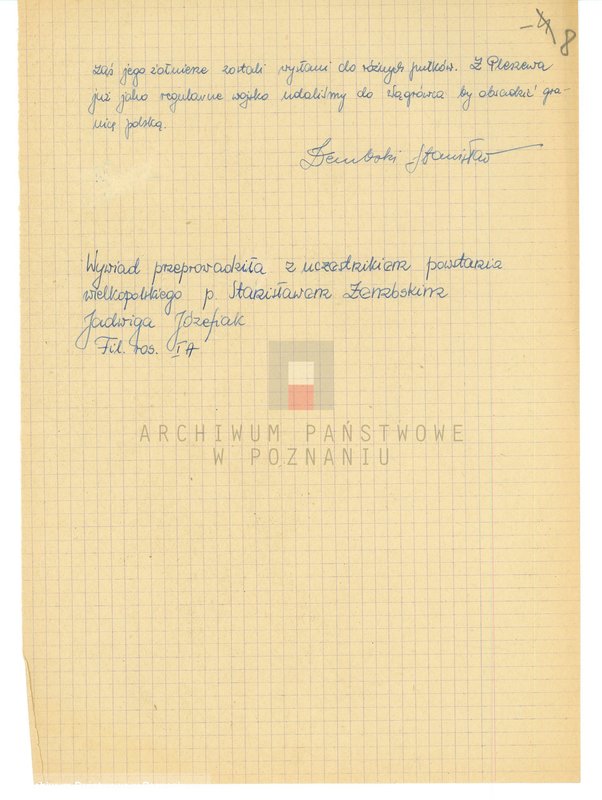 - 4 8
zaś jego żołnierze zostali wysłani do różnych pułków. Z Pleszewa
już jako regularne wojsko udaliśmy do Wągrówca by obsadzić gra-
nicę polską.
Zembski Stanisław
Wywiad przeprowadziła z uczestnikiem powstania
wielkopolskiego p. Stanisławem Zembskim
Jadwiga Józefiak
Fil. ros. I A
ARCHIWUM PAŃSTWOWE
W POZNANIU